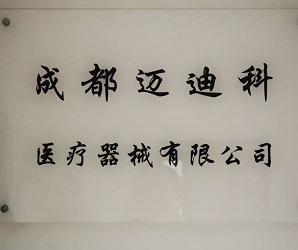 成都迈迪科
医疗器械有限公司